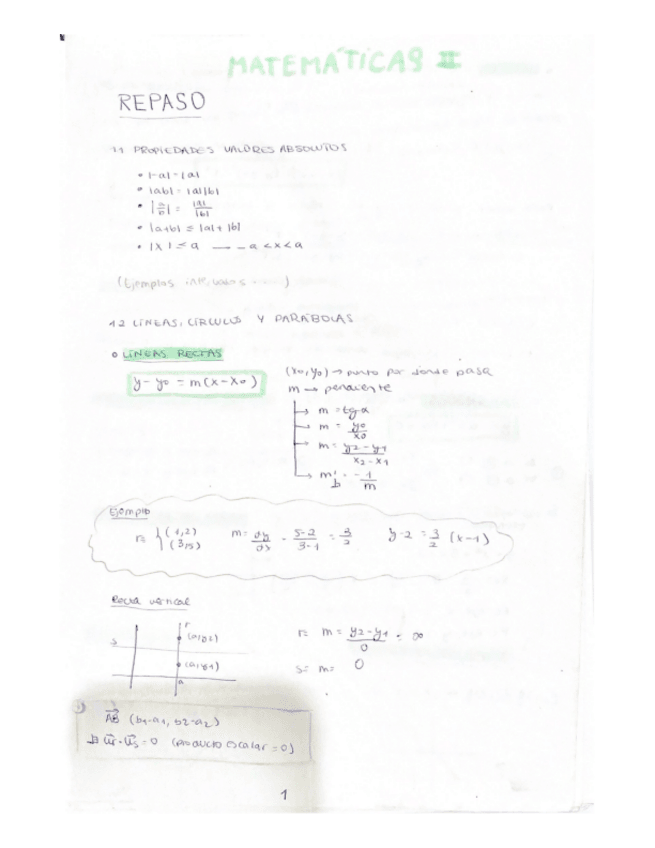 MATEMÁTICAS II
REPASO
1.1 PROPIEDADES VALORES ABSOLUTOS
• |-a| = |a|
• |ab| = |a||b|
• |a/b| = |a|/|b|
• |a+b| ≤ |a| + |b|
• |x| ≤ a → -a < x < a
(Ejemplos intervalos ....)
1.2 LÍNEAS, CÍRCULOS Y PARÁBOLAS
o LÍNEAS RECTAS
y - y0 = m(x - x0)
(x0, y0) → punto por donde pasa
m → pendiente
→ m = tg α
→ m = y0/x0
→ m = y2 - y1 / x2 - x1
→ m' = - 1/m
Ejemplo
r ≡ { (1,2) (3,5) m = = 5-2/3-1 = 3/2 y - 2 = 3/2 (x - 1)
Recta vertical
r
s
(a, b2)
(a, b1)
a
r ≡ m = y2 - y1 / 0 = ∞
s ≡ m = 0
AB (b1 - a1, b2 - a2)
ur · us = 0 (producto escalar = 0)
1